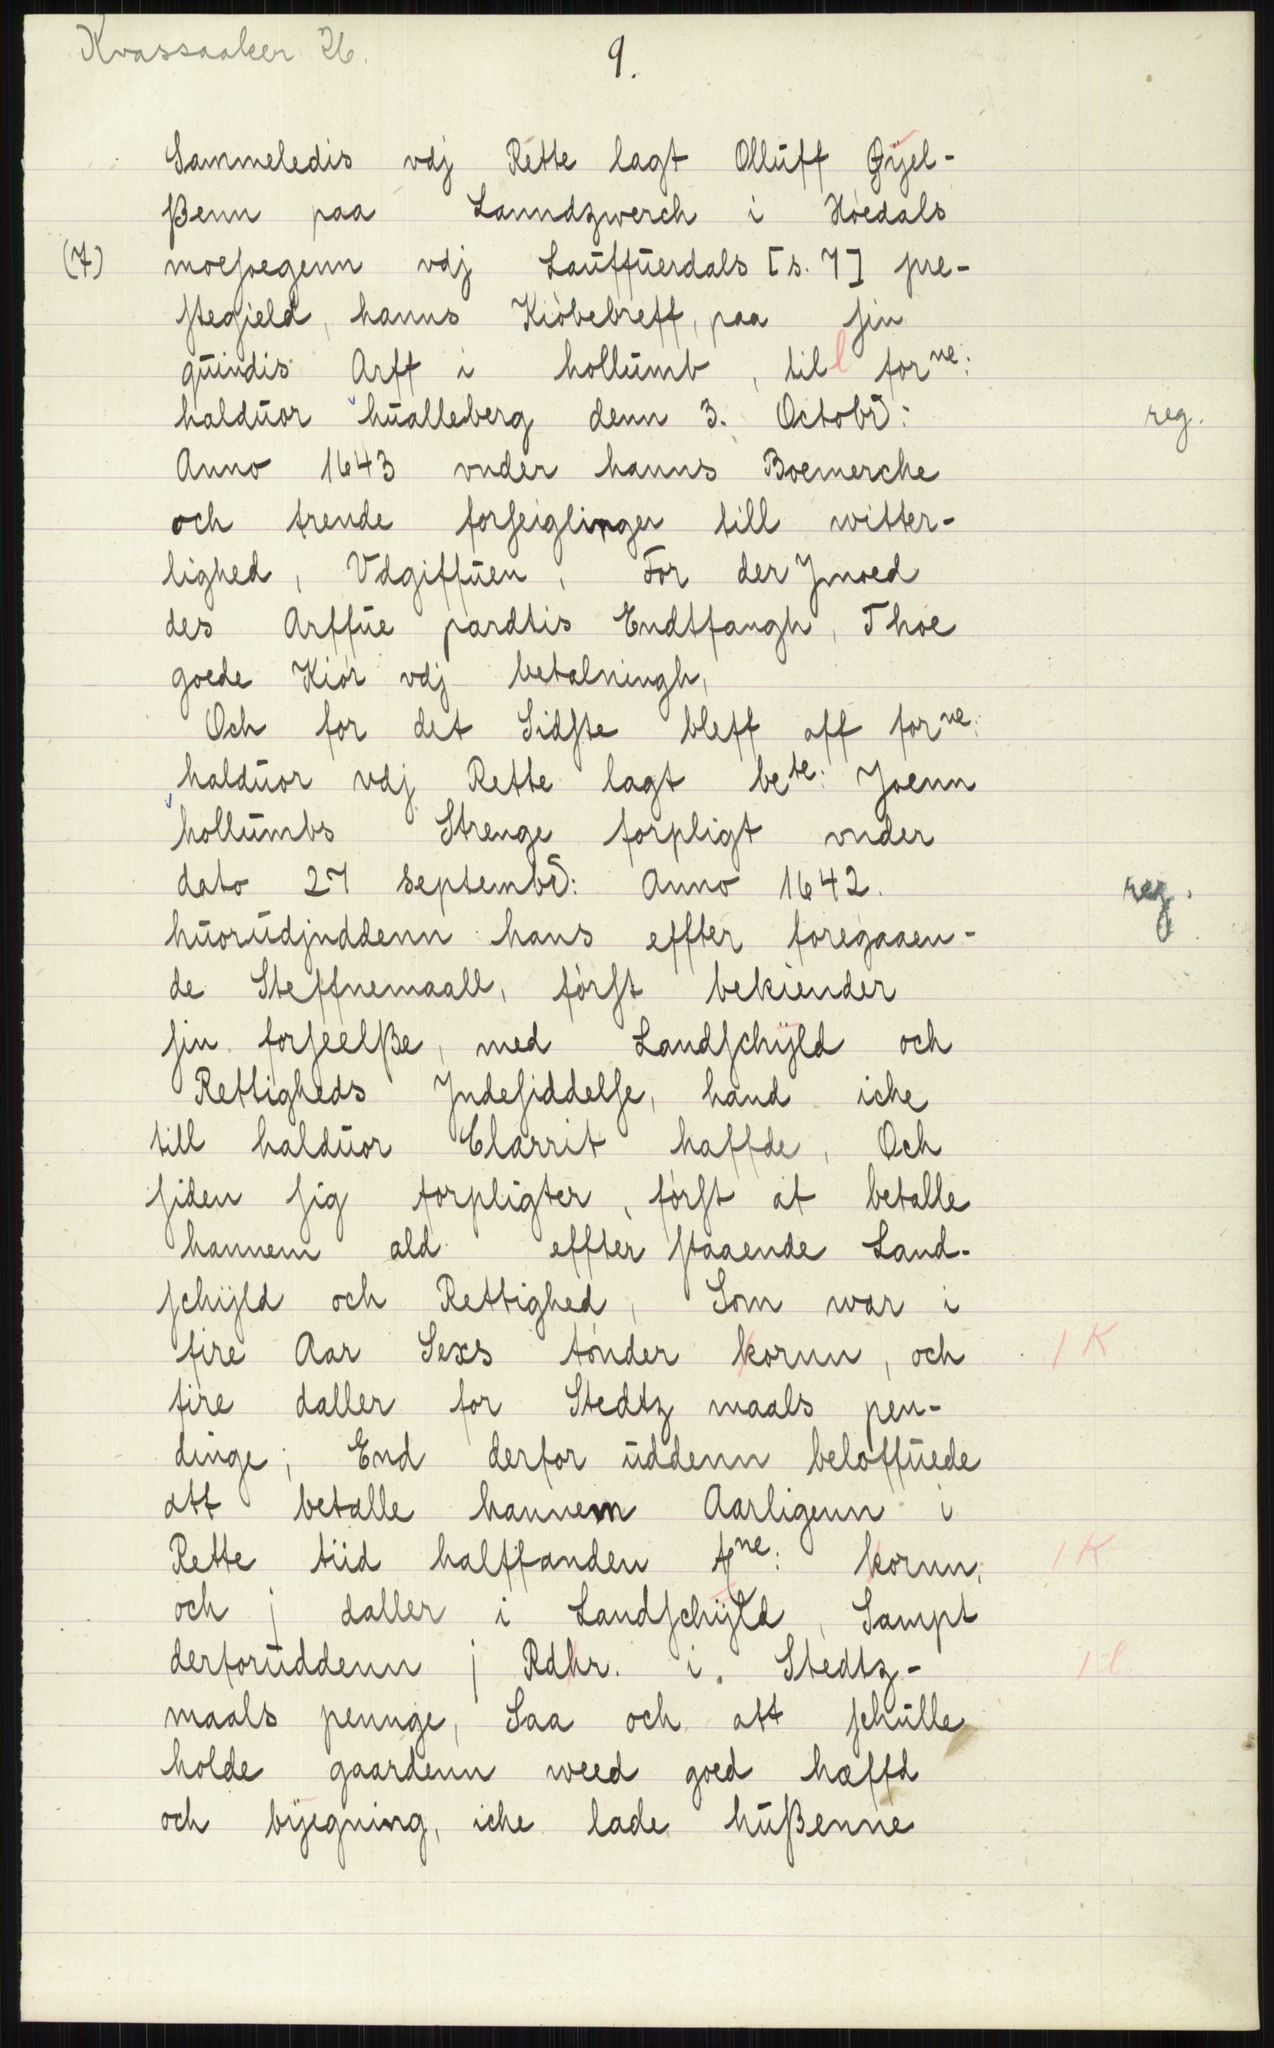 Kvassaaker 26.
9.
Sammeledis vdj Rette lagt Olluff Gÿel-
ßenn paa Lanndzwerch i Høedals
(7) moesoegenn vdj Lauffuerdals [s. 7] pre-
stegield, hanns Kiøbebreff, paa sin
quindis Arff i hollumb, till forne:
halduor hualleberg denn 3. Octobr:
reg.
Anno 1643 vnder hanns Boemerche
och trende forseiglinger till witter-
lighed, Vdgiffuen, For der Jmoed
des Arffue pardtis Endtfangh, Thoe
goede Kiør vdj betalningh,
Och for det Sidste bleff aff forne:
halduor vdj Rette lagt bete: Joenn
hollumbs Strenge forpligt vnder
dato 27 septembr: Anno 1642.
reg.
huorudjnddenn hans effter foregaaen-
de Steffnemaall, først bekiender
sin forseelße, med Landschÿld och
Rettigheds Jndesiddelse, hand iche
till halduor Clarrit haffde, Och
siden sig forpligter, først at betalle
hannem ald effter staaende Land-
schÿld och Rettighed, Som war i
fire Aar Sexs tønder kornn, och
1 K
fire daller for Stedtz maals pen-
dinge; End derfor uddenn beloffuede
att betalle hannem Aarligenn i
Rette tiid halffanden tne: kornn,
1 K
och j daller i Landschÿld, Sampt
derforuddenn j Rdhr. i. Stedtz-
1 l
maals pennge, Saa och att schulle
holde gaardenn weed goed hæffd
och bÿegning, iche lade hußenne